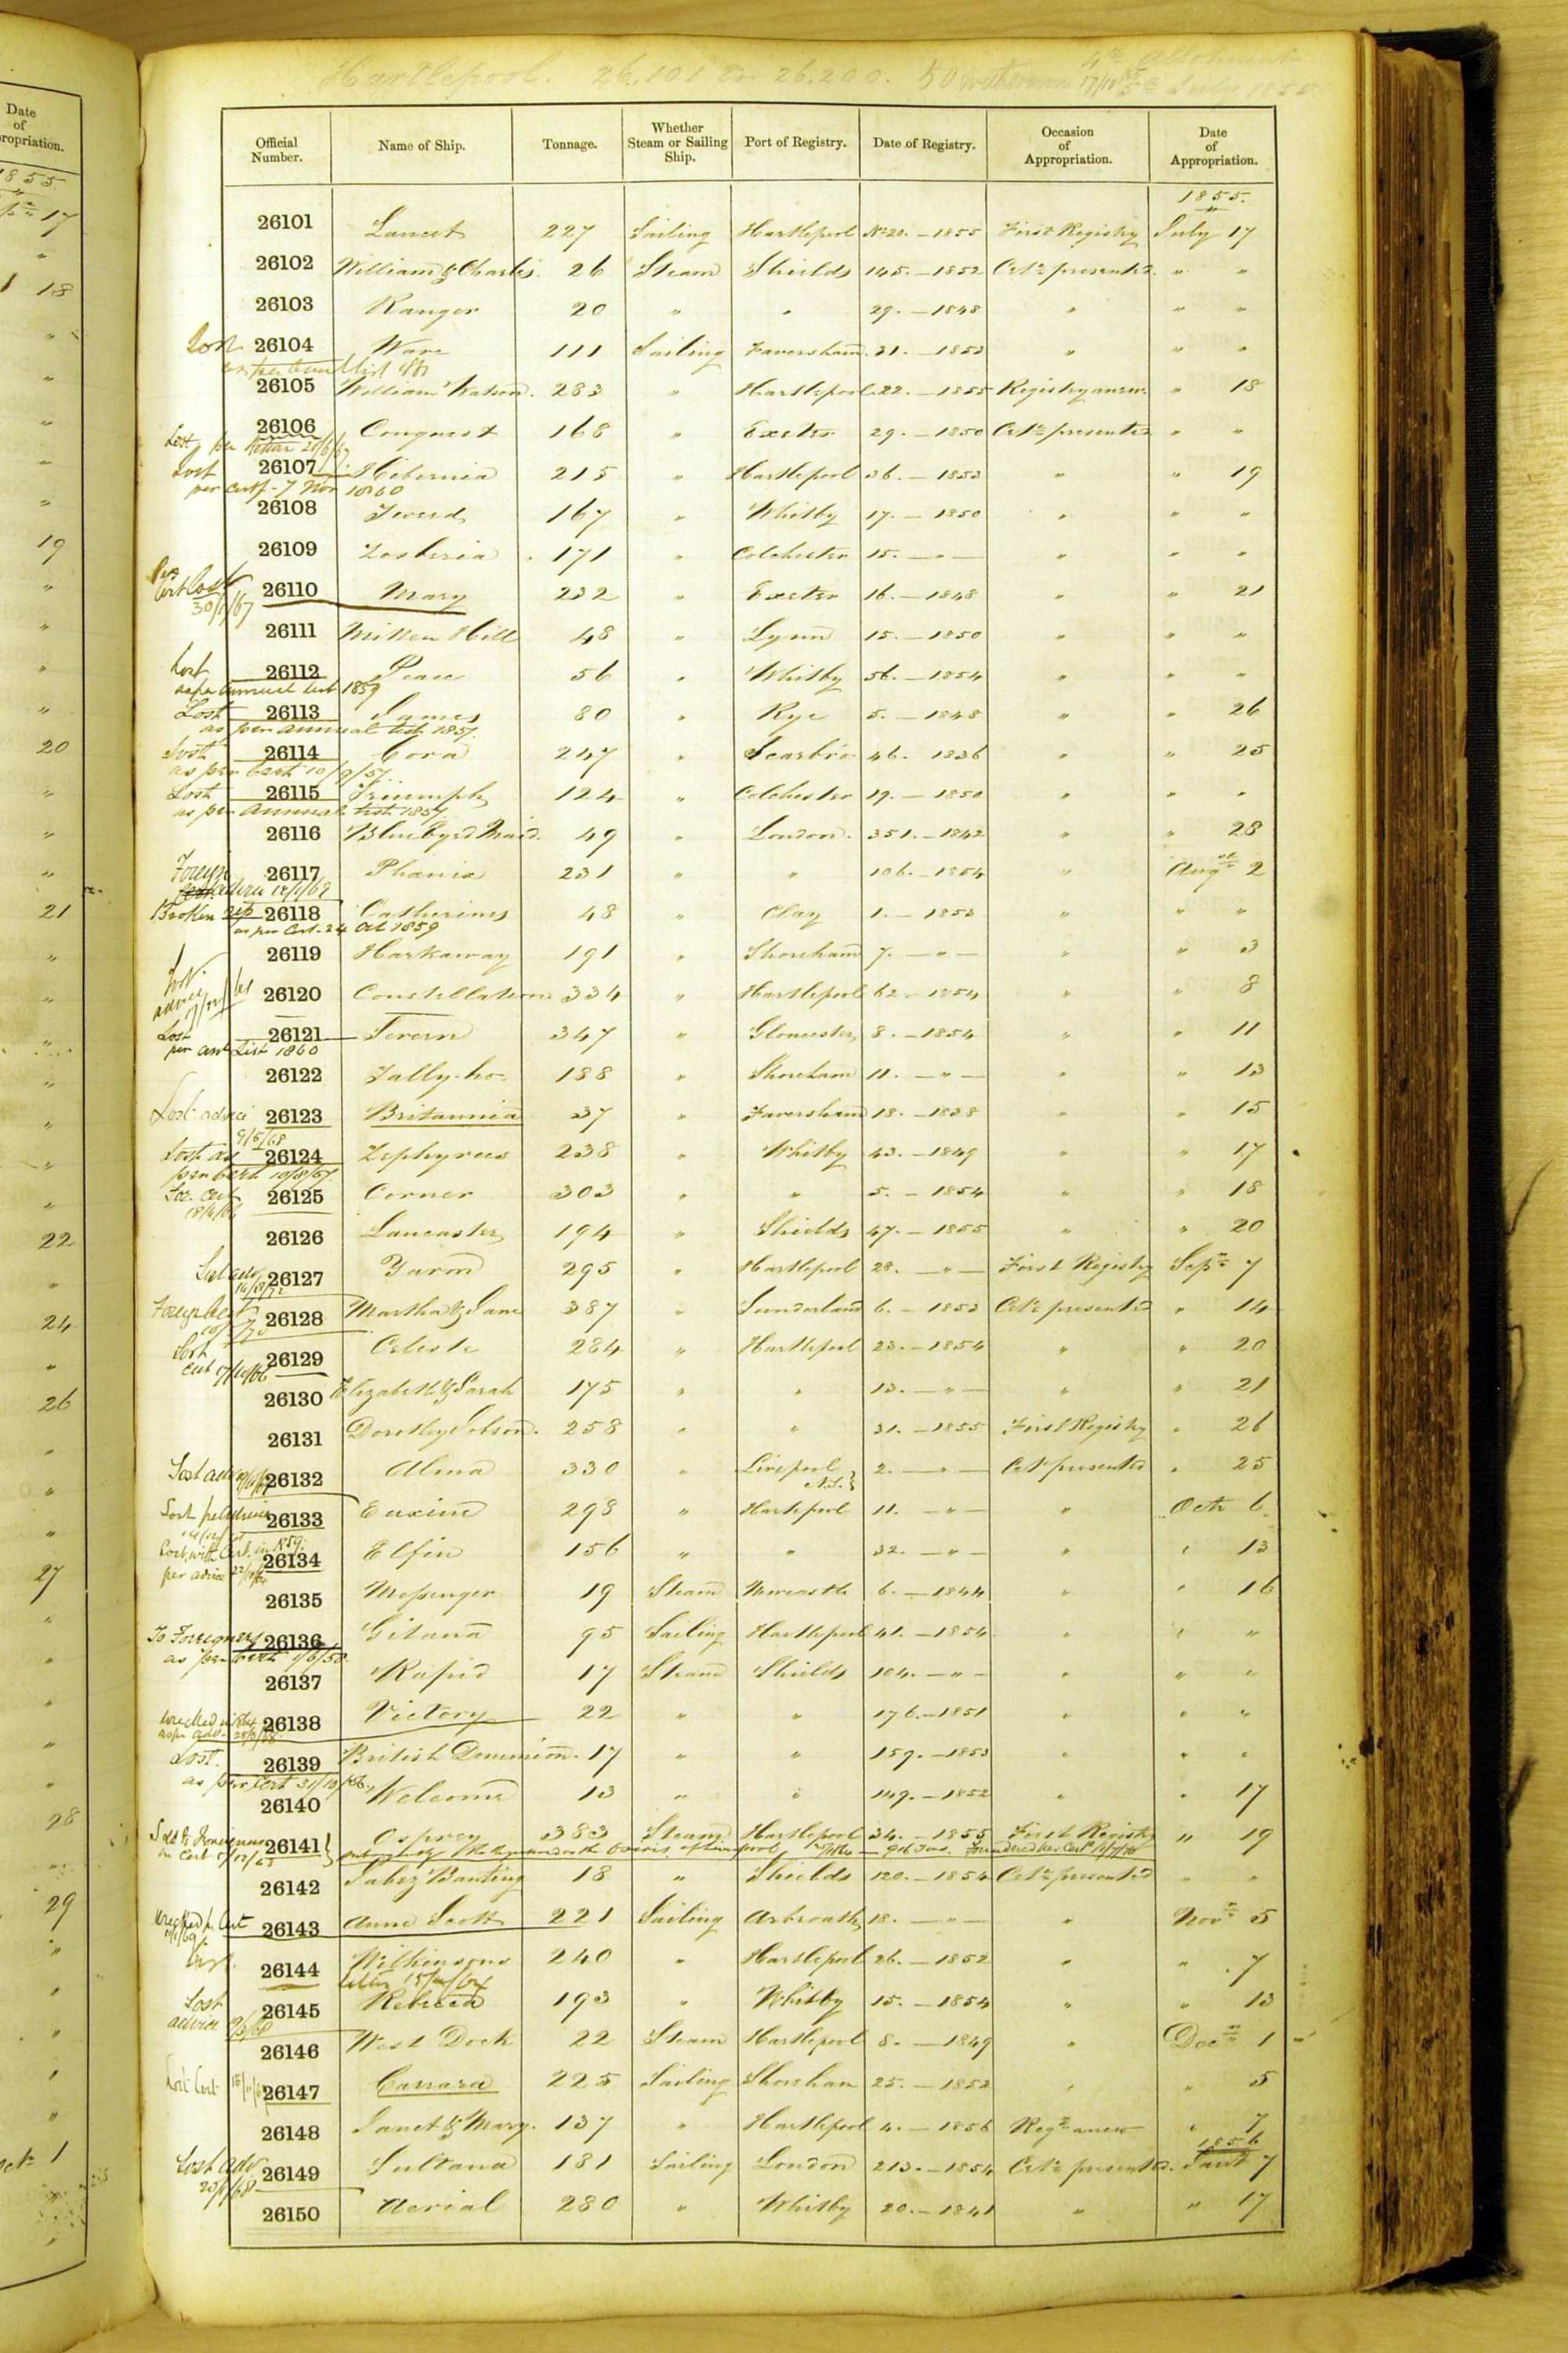 Date
of
ropriation.
1855
17
18
19
20
21
22
24
26
27
28
29
1
Hartlepool. 26.101 to 26.200. 50 4th Allotment
17/10 July 1855
Official Number. Name of Ship. Tonnage. Whether Steam or Sailing Ship. Port of Registry. Date of Registry. Occasion of Appropriation. Date of Appropriation.
1855.
26101 Lancet 227 Sailing Hartlepool No 20. — 1855 First Registry July 17
26102 William & Charles 26 Steam Shields 145. — 1852 Certe presented. " "
26103 Ranger 20 " " 29. — 1848 " " "
Lost 26104 111 Sailing Faversham 31. — 1853 " " "
as per annual list
26105 William Watson. 283 " Hartlepool 22. — 1855 Registry anew. " 18
26106 Conquest 168 " Exeter 29. — 1850 Certe presented " "
Lost per letter
Lost 26107 Hibernia 215 " Hartlepool 36. — 1853 " " 19
per certf. 7 Nov 1860
26108 Tweed 167 " Whitby 17. — 1850 " " "
26109 171 " Colchester 15. — " — " " "
Per Cert Lost 26110 Mary 232 " Exeter 16. — 1848 " " 21
26111 Hill 48 " Lynn 15. — 1850 " " "
Lost 26112 Peace 56 " Whitby 56. — 1854 " " "
as per annual list 1859
Lost 26113 James 80 " Rye 5. — 1848 " " 26
as per annual list 1857.
Lost 26114 Cora 247 " Scarbro 46. 1836 " " 25
as per Cert 10/9/57.
Lost 26115 Triumph 124 " Colchester 19. — 1850 " " "
as per annual list 1857.
26116 Blue Eyed Maid. 49 " London. 351. — 1842 " " 28
Foreign 26117 Phœnix 231 " " 106. — 1854 " Augst 2
Broken up 26118 Catherine 48 " Clay 1. — 1853 " " "
as per Cert. 24 Oct 1859
26119 Harkaway 191 " Shoreham 7. — " — " " 3
Lost advice 26120 Constellation 334 " Hartlepool 62 — 1854 " " 8
Lost 26121 Severn 347 " Gloucester 8. — 1854 " " 11
per ann List 1860
26122 Tally-ho 188 " Shoreham 11. — " — " " 13
Lost advice 26123 Britannia 37 " Faversham 18. — 1838 " " 15
9/5/68
Lost as 26124 Zephyrus 238 " Whitby 43. — 1849 " " 17
per Cert 10/8/57.
For. Cert 26125 Corner 303 " " 5. — 1854 " " 18
26126 Lancaster 194 " Shields 47. — 1855 " " 20
Lost adv 26127 Yarm 295 " Hartlepool 28. — " — First Registry Sepr 7
Foreign Cert 26128 Martha & Jane 387 " Sunderland 6. — 1853 Certe presented " 14
Lost 26129 Celeste 284 " Hartlepool 23. — 1854 " " 20
26130 Elizabeth & Sarah 175 " " 13. — " — " " 21
26131 Dorothy Jobson. 258 " " 31. — 1855 First Registry " 26
Lost adv 26132 Alma 330 " Liverpool N.S. 2. — " — Cert presented " 25
Lost per advice 26133 Euxine 298 " Hartlepool 11. — " — " Octr 6
Lost, with Cert. in 1859. 26134 Elfin 156 " " 32. — " — " " 13
per advice
26135 Messenger 19 Steam Newcastle 6. — 1844 " " 16
To Foreigners 26136 Gitana 95 Sailing Hartlepool 41. — 1854 " " "
as per Cert 1/6/58.
26137 Rapid 17 Steam Shields 104. — " — " " "
wrecked in 26138 Victory 22 " " 176. — 1851 " " "
Lost. 26139 British Dominion. 17 " " 159. — 1853 " " "
as per Cert 31/10/
26140 Welcome 13 " " 149. — 1852 " " 17
Sold to Foreigners 26141 Osprey 383 Steam Hartlepool 34. — 1855 First Registry " 19
26142 Jabez Bunting 18 " Shields 120. — 1854 Certe presented " "
Wrecked pr Cert 26143 Anne Scott 221 Sailing Arbroath 18. — " — " Novr 5
26144 Wilkinsons 240 " Hartlepool 26. — 1852 " " 7
letter
Lost 26145 Rebecca 193 " Whitby 15. — 1854 " " 13
advice
26146 West Dock 22 Steam Hartlepool 8. — 1849 " Decr 1
Lost Cert 26147 Carrara 225 Sailing Shoreham 25. — 1853 " " 5
26148 Janet & Mary. 137 " Hartlepool 4. — 1856 Regy anew " 7
1856
Lost adv 26149 Sultana 181 Sailing London 213. — 1854 Certe presented. Jany 7
26150 Aerial 280 " Whitby 20. — 1841 " " 17